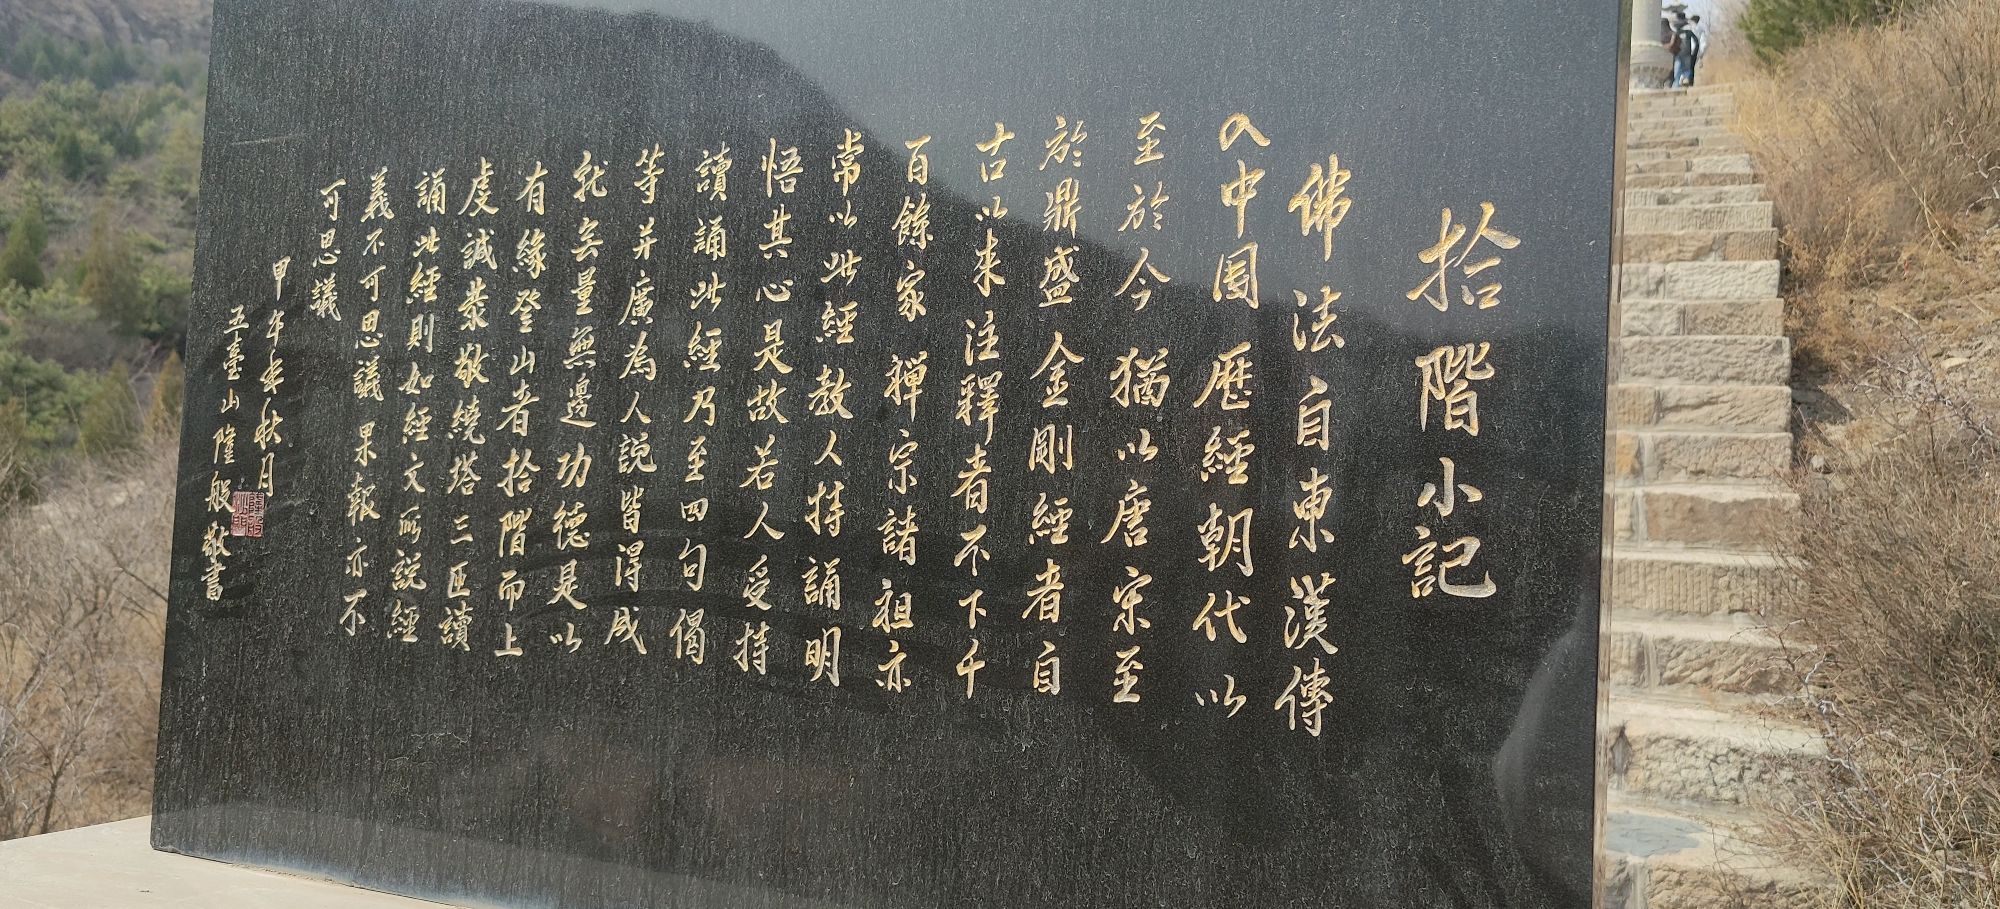 拾階小記
佛法自東漢傳
入中国歷經朝代以
至於今猶以唐宋至
於鼎盛金剛經者自
古以来注釋者不下千
百餘家禅宗諸祖亦
常以此經教人持誦明
悟其心是故若人受持
讀誦此經乃至四句偈
等并廣為人説皆得成
就無量無邊功德是以
有緣登山者拾階而上
虔誠恭敬繞塔三匝讀
誦此經則如經文所説經
義不可思議果報亦不
可思議
甲午年秋月
五臺山隆般敬書